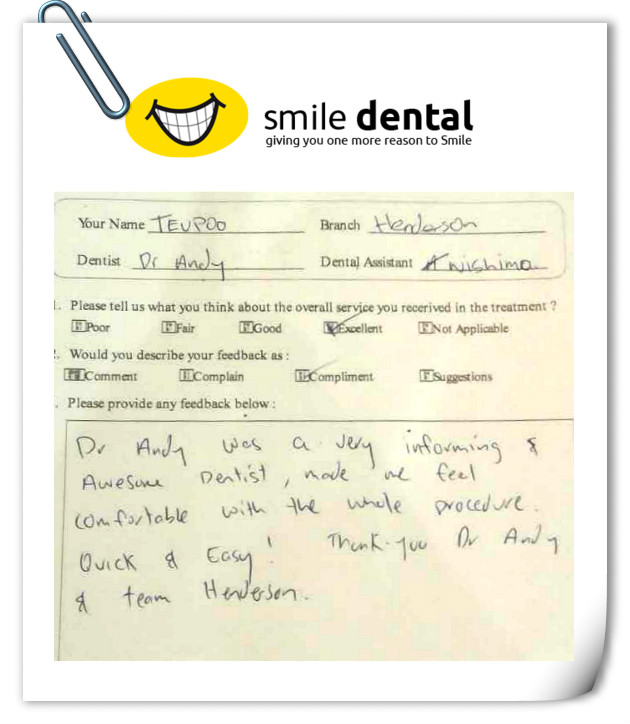 smile dental
giving you one more reason to Smile
Your Name TEUPOO Branch Henderson
Dentist Dr Andy Dental Assistant Anishima
1. Please tell us what you think about the overall service you recerived in the treatment ?
Poor Fair Good Excellent Not Applicable
2. Would you describe your feedback as :
Comment Complain Compliment Suggestions
. Please provide any feedback below :
Dr Andy was a very informing &
Awesome Dentist, made me feel
comfortable with the whole procedure.
Quick & Easy! Thank-you Dr Andy
& team Henderson.